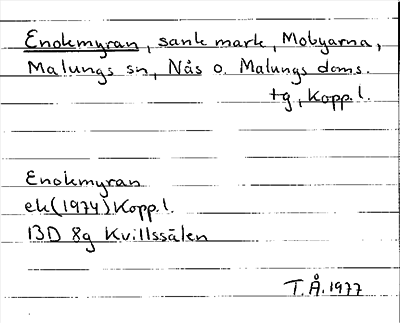 Enokmyran, sank mark, Mobyarna,
Malungs sn, Nås o. Malungs doms.
tg, Kopp. l.
Enokmyran
ek (1974) Kopp. l.
13D 8g Kvillssälen
T.Å. 1977